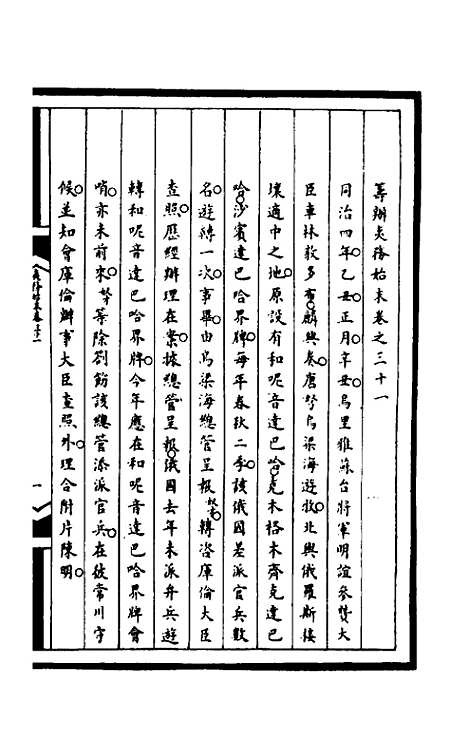 籌辦夷務始末卷之三十一
同治四年乙丑正月辛丑烏里雅蘇台將軍明誼參贊大
臣車林敦多布麟興奏唐努烏梁海遊牧北與俄羅斯接
壤適中之地原設有和呢音達巴哈克木格木齊克達巴
哈沙賓達巴哈界牌每年春秋二季該俄國差派官兵數
名遊轉一次事畢由烏梁海總管呈報奴才等轉咨庫倫大臣
查照歷經辦理在案據總管呈報俄國去年未派弁兵遊
轉和呢音達巴哈界牌今年應在和呢音達巴哈界牌會
哨亦未前來奴才等除劄飭該總管添派官兵在彼常川守
候並知會庫倫辦事大臣查照外理合附片陳明
夷務始末卷三十一
一